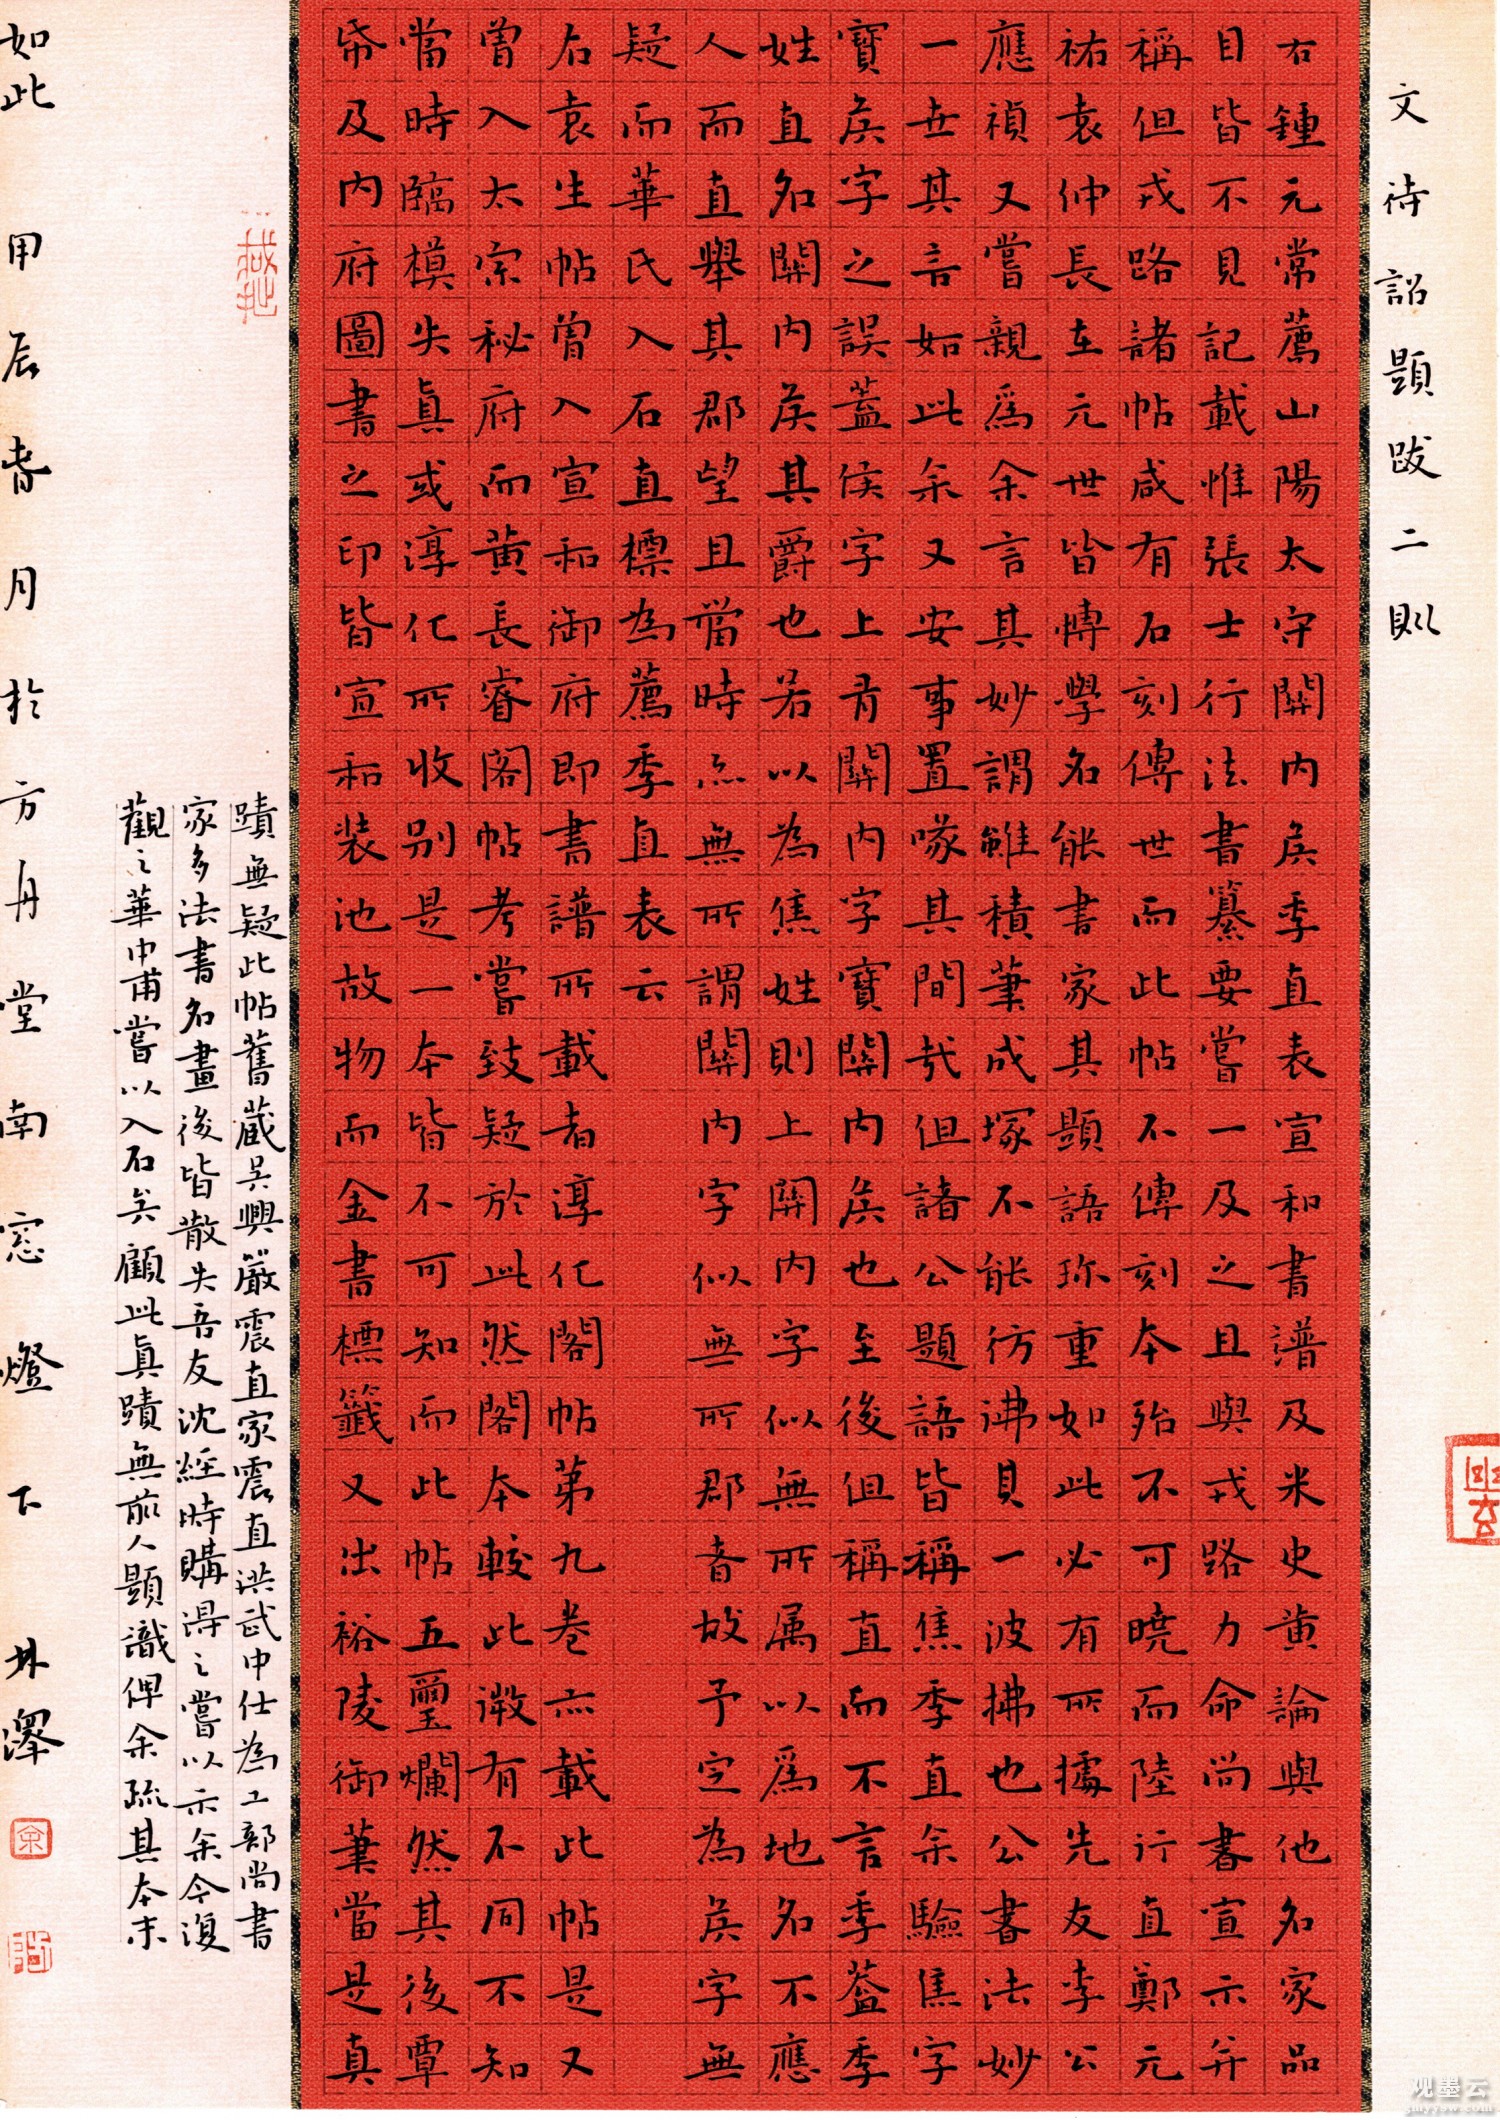 文待詔題跋二則
右鍾元常薦山陽太守關内矦季直表宣和書譜及米史黄論與他名家品
目皆不見記載惟張士行法書纂要嘗一及之且與戎路力命尚書宣示并
稱但戎路諸帖咸有石刻傳世而此帖不傳刻本殆不可曉而陸行直鄭元
祐袁仲長在元世皆博學名能書家其題語珎重如此必有所據先友李公
應禎又嘗親爲余言其妙謂雖積筆成塚不能彷彿其一波拂也公書法妙
一世其言如此余又安事置喙其間㦲但諸公題語皆稱焦季直余驗焦字
寳矦字之誤蓋侯字上有關内字寳關内矦也至後但稱直而不言季蓋季
姓直名關内矦其爵也若以為焦姓則上關内字似無所属以爲地名不應
人而直舉其郡望且當時亦無所謂關内字似無所郡者故予定為矦字無
疑而華氏入石直標為薦季直表云
右袁生帖曾入宣和御府即書譜所載者淳化閣帖第九卷亦載此帖是又
曾入太宗秘府而黄長睿閣帖考嘗致疑於此然閣本較此微有不同不知
當時臨模失真或淳化所收别是一本皆不可知而此帖五璽爛然其後覃
帋及内府圖書之印皆宣和装池故物而金書標籤又出裕陵御筆當是真
蹟無疑此帖舊蔵吴興嚴震直家震直洪武中仕為工部尚書
家多法書名畫後皆散失吾友沈經時購得之嘗以示余今復
觀之華中甫嘗以入石矣顧此真蹟無前人題識俾余疏其本末
如此 甲辰春月於方舟堂南窓燈下林澤
观墨云